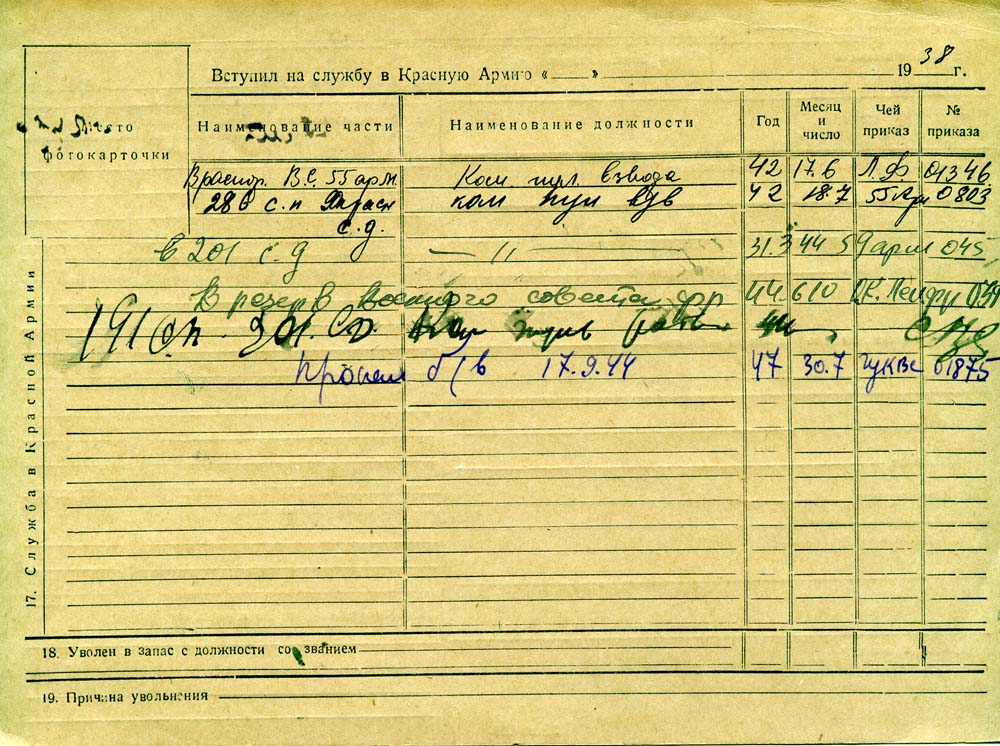 Вступил на службу в Красную Армию « » 1938 г.
Место
фотокарточки
Наименование части Наименование должности Год Месяц и число Чей приказ № приказа
В распор. В.С. 55 арм. Ком. пул. взвода 42 17.6 Л.Ф. 01346
286 с.п ком пул взв 42 18.7 55 Арм 0803
с.д.
в 201 с.д — " — 31.3 44 59 арм 045
В резерв Военного совета фр 44 6/0
191 сп 201. СД.
пропал б/в 17.9.44 47 30.7 ГУКВС 01875
17. Служба в Красной Армии
18. Уволен в запас с должности со званием
19. Причина увольнения